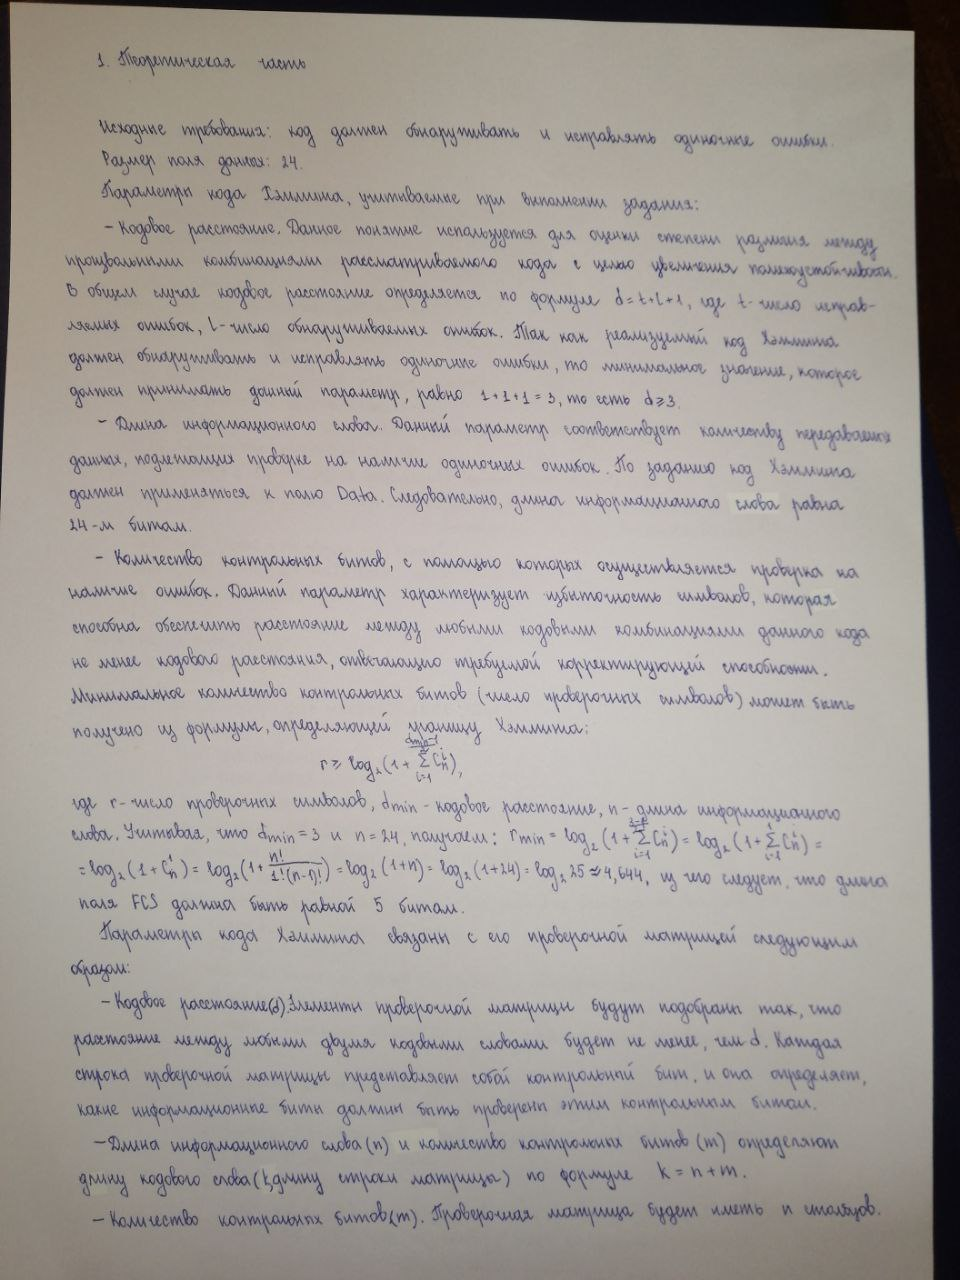 1. Теоретическая часть
Исходные требования: код должен обнаруживать и исправлять одиночные ошибки.
Размер поля данных: 24.
Параметры кода Хэмминга, учитываемые при выполнении задания:
- Кодовое расстояние. Данное понятие используется для оценки степени различия между
произвольными комбинациями рассматриваемого кода с целью увеличения помехоустойчивости.
В общем случае кодовое расстояние определяется по формуле d = t + l + 1, где t - число исправ-
ляемых ошибок, l - число обнаруживаемых ошибок. Так как реализуемый код Хэмминга
должен обнаруживать и исправлять одиночные ошибки, то минимальное значение, которое
должен принимать данный параметр, равно 1 + 1 + 1 = 3, то есть d ≥ 3.
- Длина информационного слова. Данный параметр соответствует количеству передаваемых
данных, подлежащих проверке на наличие одиночных ошибок. По заданию код Хэмминга
должен применяться к полю Data. Следовательно, длина информационного слова равна
24-м битам.
- Количество контрольных битов, с помощью которых осуществляется проверка на
наличие ошибок. Данный параметр характеризует избыточность символов, которая
способна обеспечить расстояние между любыми кодовыми комбинациями данного кода
не менее кодового расстояния, отвечающего требуемой корректирующей способности.
Минимальное количество контрольных битов (число проверочных символов) может быть
получено из формулы, определяющей границу Хэмминга:
r ≥ log₂(1 + Σ_{i=1}^{dmin-1} C_n^i),
где r - число проверочных символов, dmin - кодовое расстояние, n - длина информационного
слова. Учитывая, что dmin = 3 и n = 24, получаем: rmin = log₂(1 + Σ_{i=1} C_n^i) = log₂(1 + Σ_{i=1}^{1} C_n^i) =
= log₂(1 + C_n^1) = log₂(1 + n!/(1!(n-1)!)) = log₂(1+n) = log₂(1+24) = log₂25 ≈ 4,644, из чего следует, что длина
поля FCS должна быть равной 5 битам.
Параметры кода Хэмминга связаны с его проверочной матрицей следующим
образом:
- Кодовое расстояние(d). Элементы проверочной матрицы будут подобраны так, что
расстояние между любыми двумя кодовыми словами будет не менее, чем d. Каждая
строка проверочной матрицы представляет собой контрольный бит, и она определяет,
какие информационные биты должны быть проверены этим контрольным битом.
- Длина информационного слова (n) и количество контрольных битов (m) определяют
длину кодового слова (k, длину строки матрицы) по формуле k = n + m.
- Количество контрольных битов (m). Проверочная матрица будет иметь n столбцов.